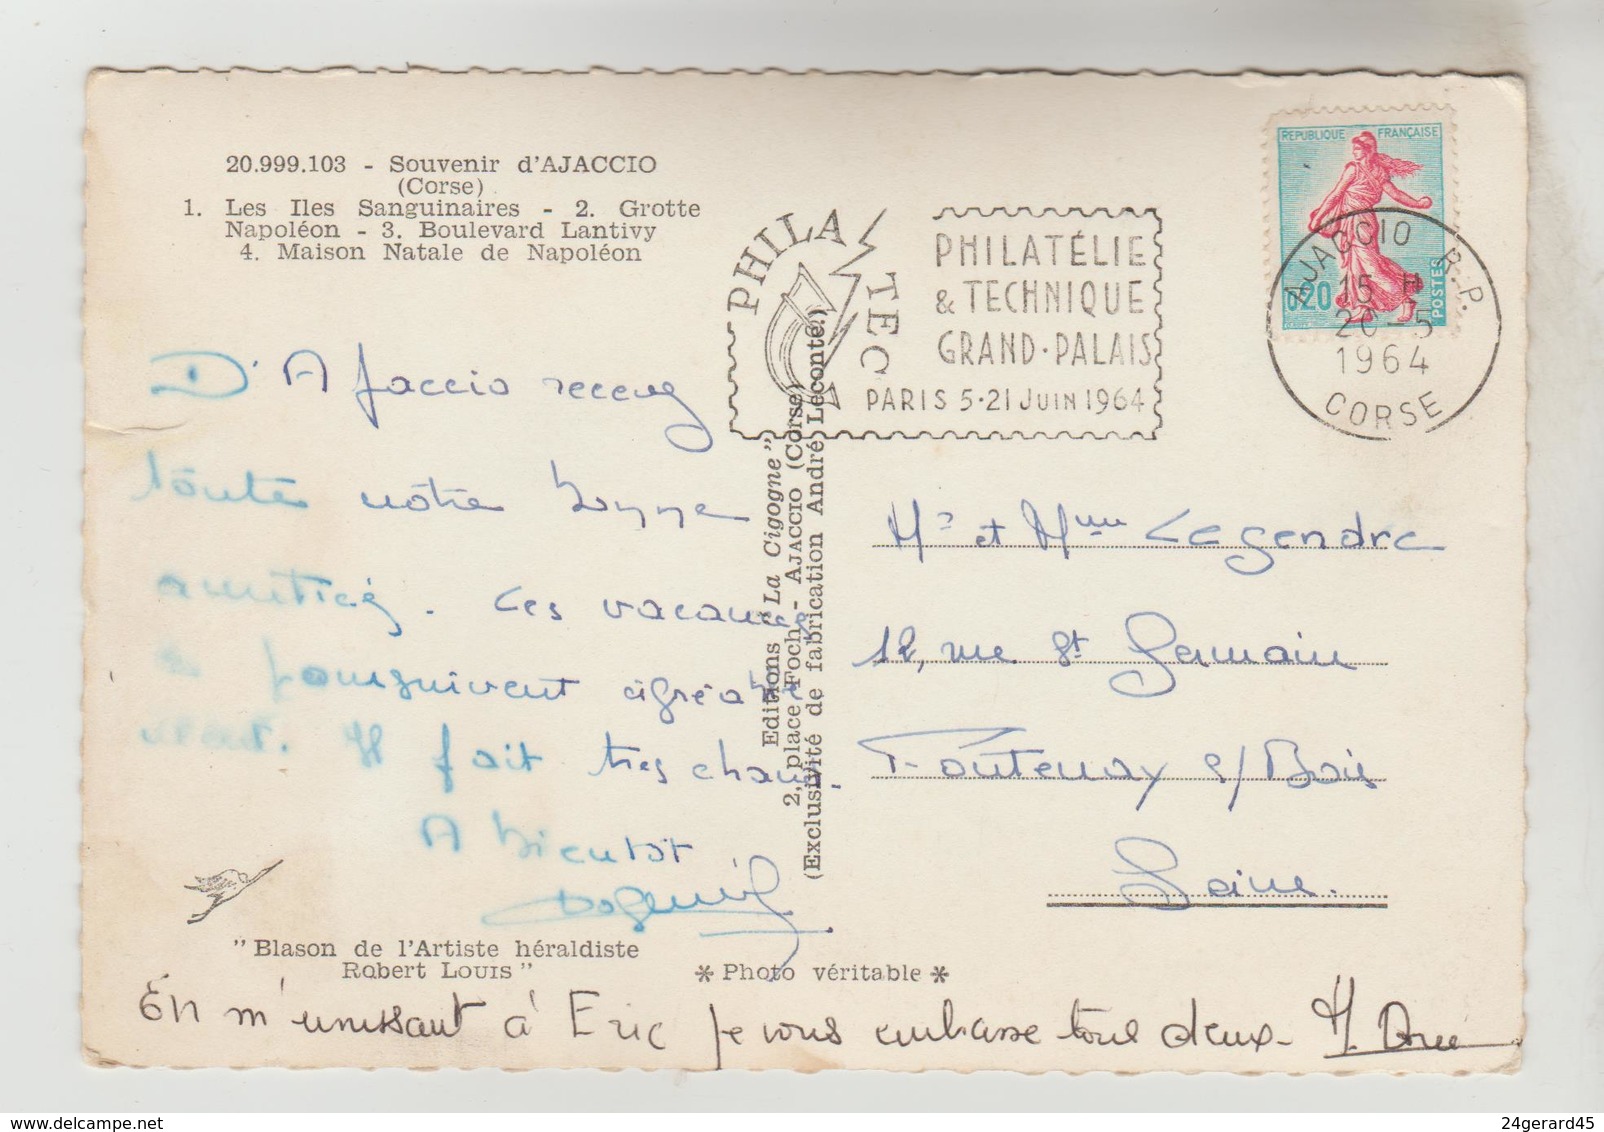 20.999.103 - Souvenir d'AJACCIO
(Corse)
1. Les Iles Sanguinaires - 2. Grotte
Napoléon - 3. Boulevard Lantivy
4. Maison Natale de Napoléon
PHILATEC
PHILATÉLIE
& TECHNIQUE
GRAND-PALAIS
PARIS 5-21 JUIN 1964
REPUBLIQUE FRANÇAISE
0,20
POSTES
AJACCIO R.P.
15 H
20-5
1964
CORSE
D'Ajaccio recevez
toute notre bonne
amitié. Les vacances
se poursuivent agréable
ment. Il fait très chaud.
A bientôt
Editions "La Cigogne"
2, place Foch - AJACCIO (Corse)
(Exclusivité de fabrication André Leconte.)
Mr et Mme Legendre
12, rue St Germain
Fontenay s/Bois
Seine.
"Blason de l'Artiste héraldiste
Robert LOUIS"
* Photo véritable *
En m'unissant à Eric je vous embrasse tous deux-
24gerard45
www.delcampe.net